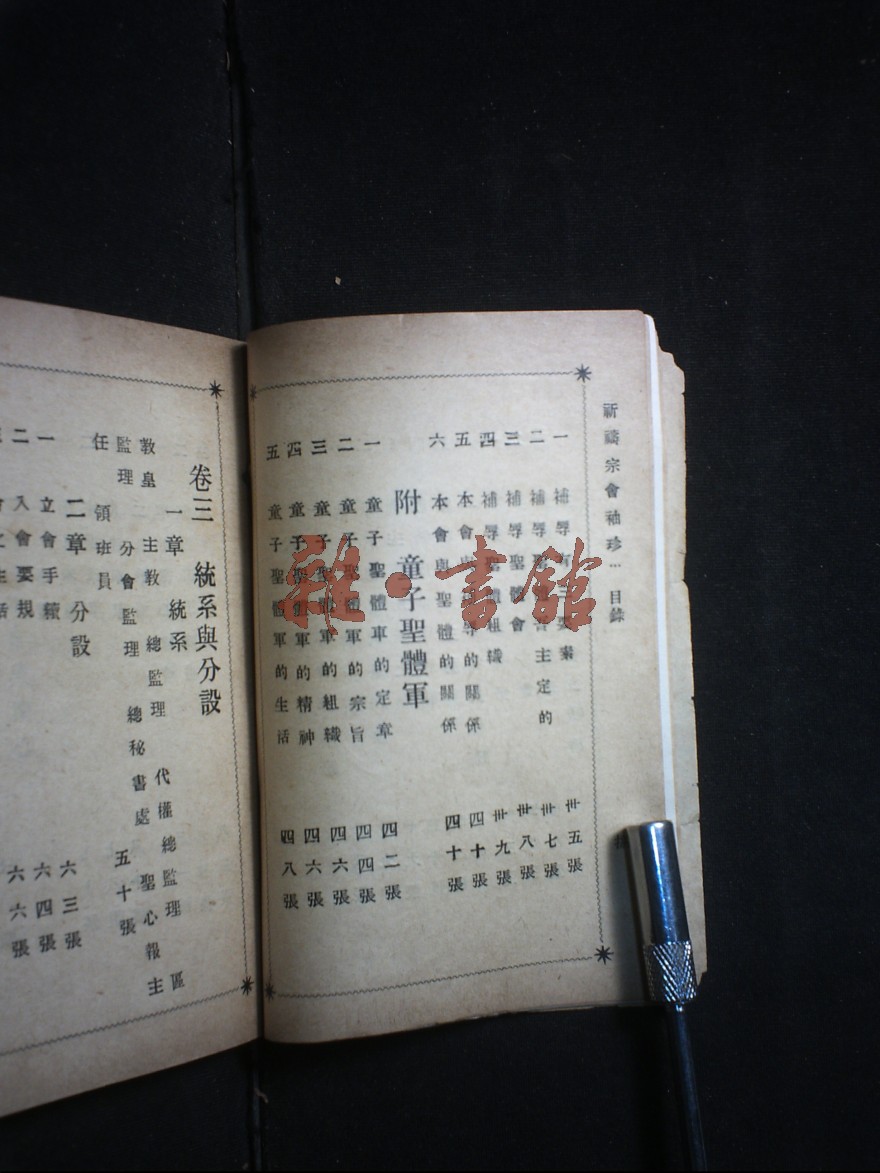 祈禱宗會袖珍… 目錄
一 補辱有三要素 卅五張
二 補辱 主定的 卅七張
三 補辱聖體會 卅八張
四 補辱 組織 卅九張
五 本會與 的關係 四十張
六 本會與聖體的關係 四十張
附 童子聖體軍
一 童子聖體軍的定章 四二張
二 童子聖體軍的宗旨 四四張
三 童子聖體軍的組織 四六張
四 童子聖體軍的精神 四六張
五 童子聖體軍的生活 四八張
卷三 統系與分設
一章 統系
教皇 主教 總監理 代權總監理 區
監理 分會監理 總秘書處 聖心報主
任 領班員 五十張
二章 分設
一 立會手續 六三張
二 入會要規 六四張
會 生活 六六張
雜·書館